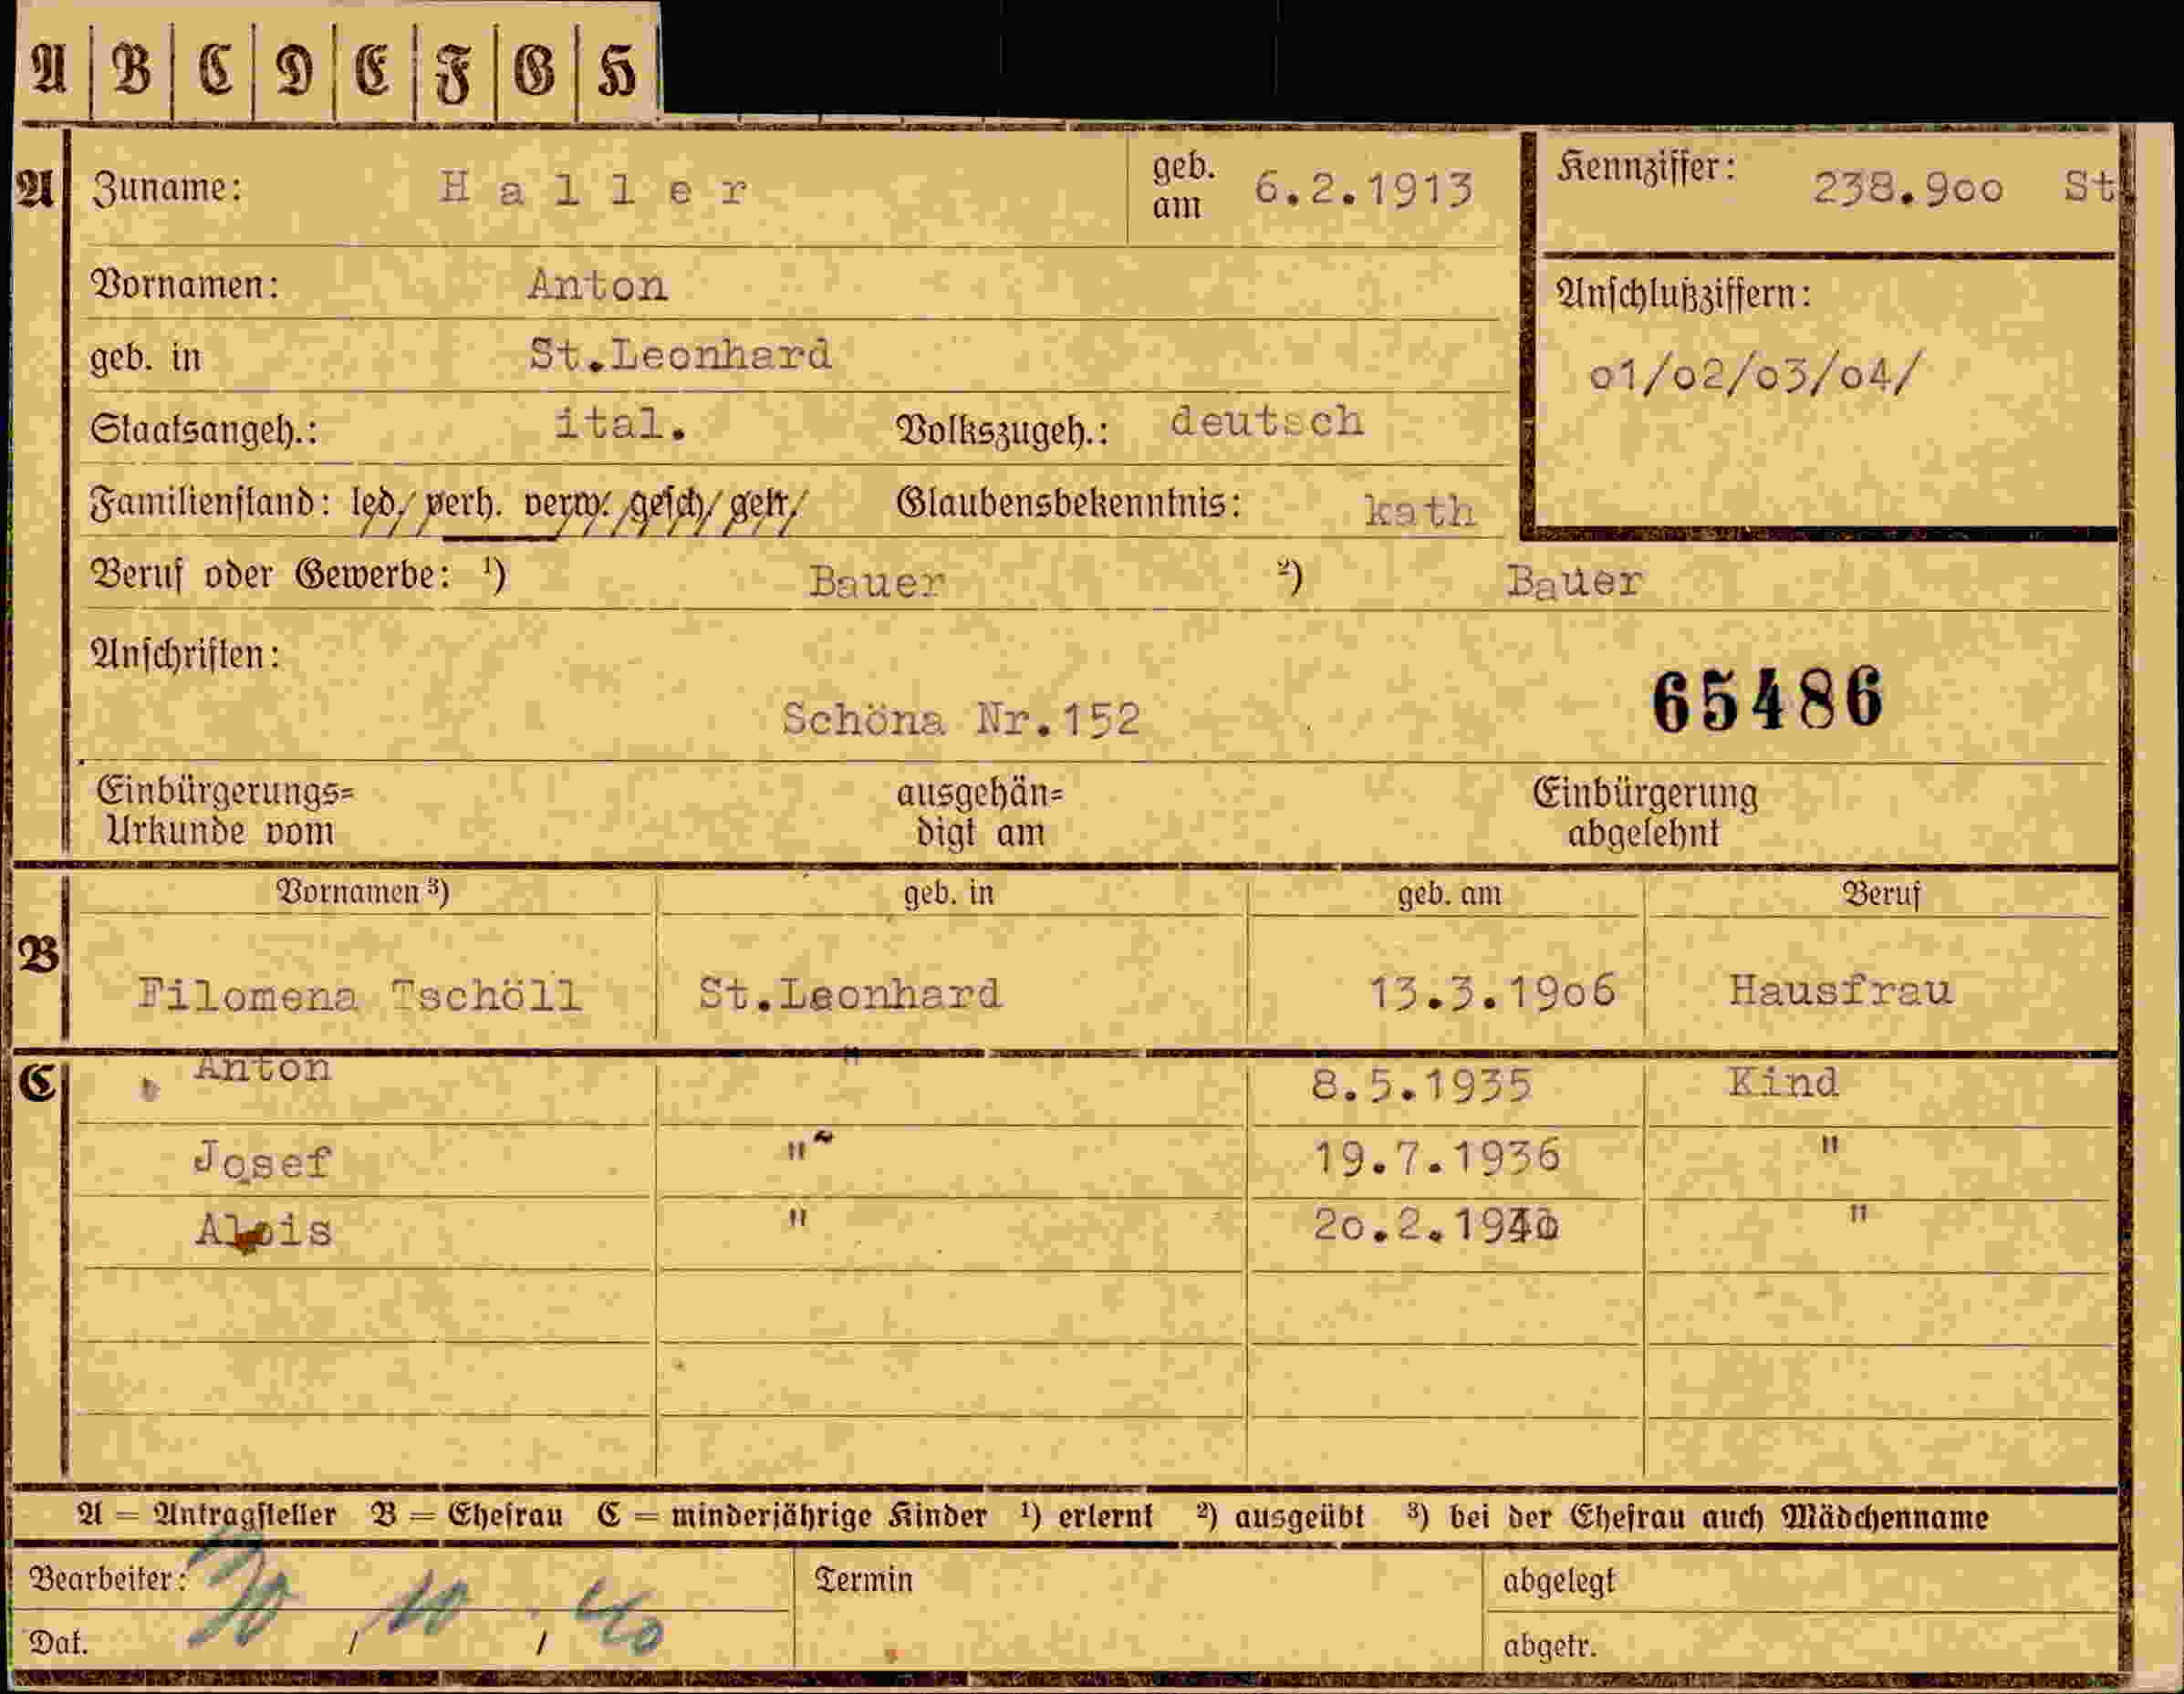 A B C D E F G H
A Zuname: Haller geb. am 6.2.1913 Kennziffer: 238.900 St
Vornamen: Anton Anschlußziffern:
geb. in St.Leonhard 01/02/03/04/
Staatsangeh.: ital. Volkszugeh.: deutsch
Familienstand: led/ verh. verw. gesch/ getr/ Glaubensbekenntnis: kath
Beruf oder Gewerbe: ¹) Bauer ²) Bauer
Anschriften:
Schöna Nr.152 65486
Einbürgerungs= ausgehän= Einbürgerung
Urkunde vom digt am abgelehnt
Vornamen ³) geb. in geb. am Beruf
B Filomena Tschöll St.Leonhard 13.3.1906 Hausfrau
C Anton " 8.5.1935 Kind
Josef " 19.7.1936 "
Alois " 20.2.1940 "
A = Antragsteller B = Ehefrau C = minderjährige Kinder ¹) erlernt ²) ausgeübt ³) bei der Ehefrau auch Mädchenname
Bearbeiter: Termin abgelegt
Dat. 10 / 40 abgetr.